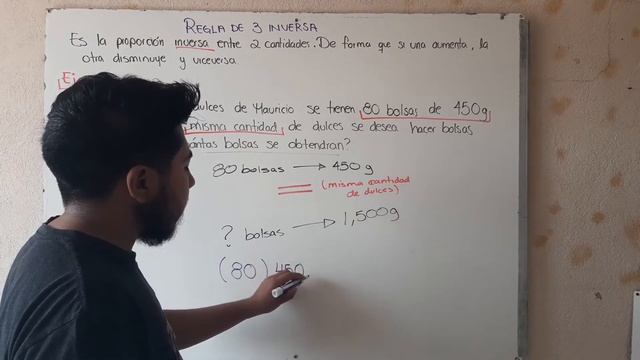 REGLA DE 3 INVERSA
Es la proporción inversa entre 2 cantidades. De forma que si una aumenta, la
otra disminuye y viceversa
Ej
dulces de Mauricio se tienen 80 bolsas de 450g,
misma cantidad de dulces se desea hacer bolsas
cuántas bolsas se obtendran?
80 bolsas → 450 g
(misma cantidad
de dulces)
? bolsas → 1,500g
(80) 450